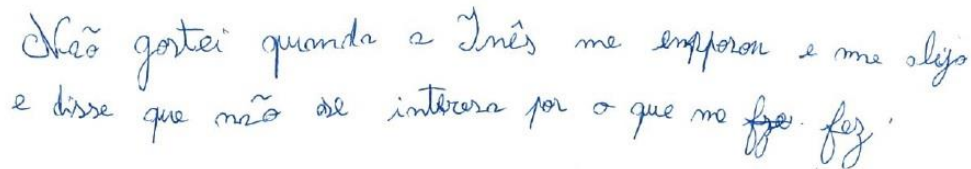 Não gostei quando a Inês me empporou e me alijo
e disse que não se interesa por o que me fze. fez.